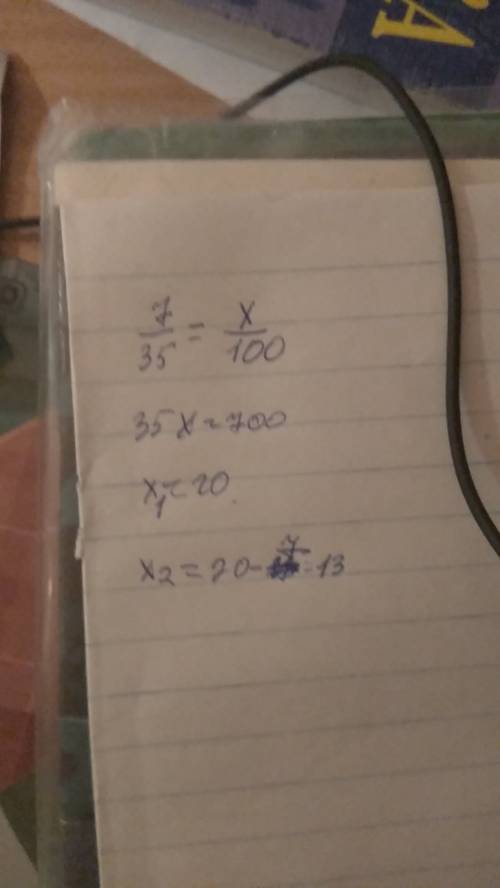 A
7/35 = x/100
35x=700
x₁=20
x₂=20-7=13